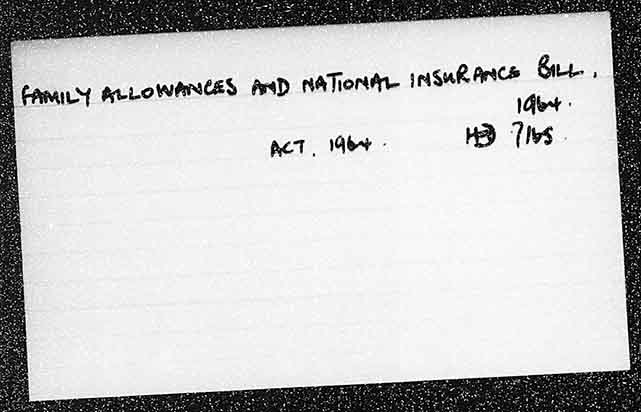 FAMILY ALLOWANCES AND NATIONAL INSURANCE BILL,
1964.
ACT. 1964.